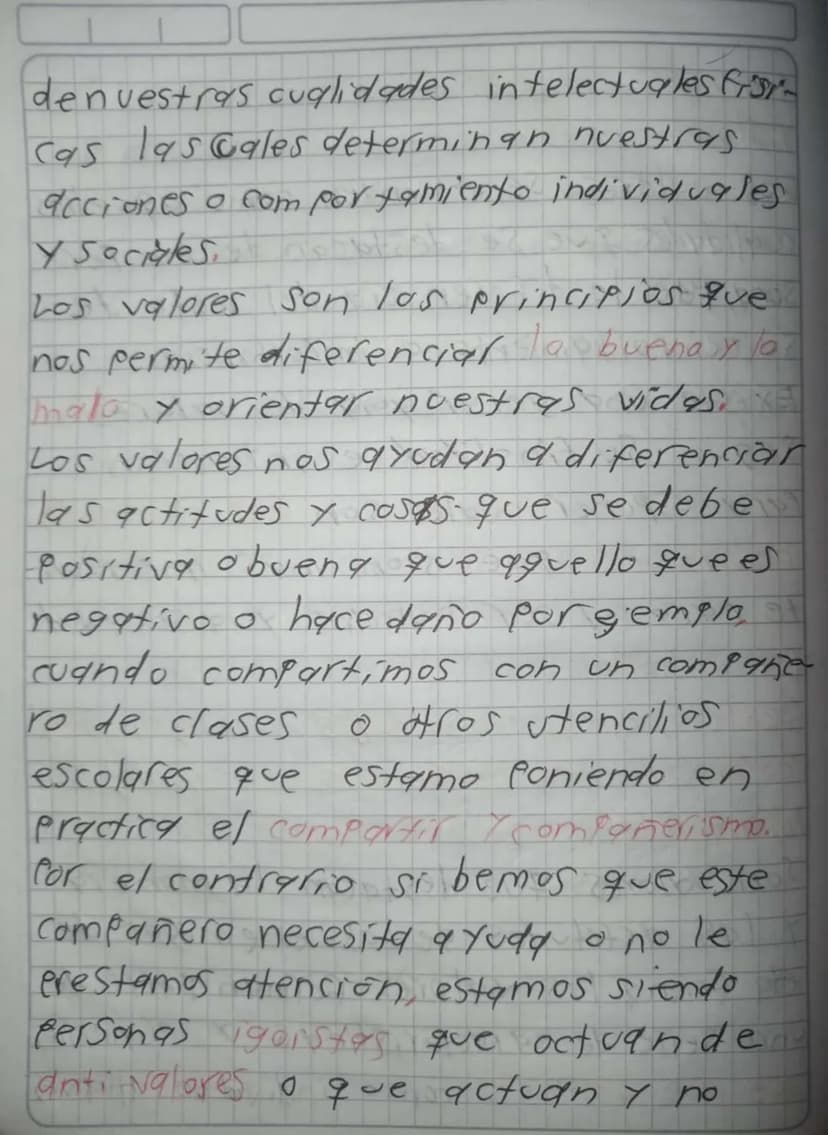 denuestras cualidades intelectuales físi-
cas las cales determinan nuestras
acciones o comportamiento individuales
y sociales.
Los valores son los principios que
nos permite diferencial lo bueno y lo
malo y orientar nuestras vidas.
Los valores nos ayudan a diferenciar
las actitudes y cosas que se debe
positiva o buena que aquello que es
negativo o hace daño por gemplo,
cuando compartimos con un compañe
ro de clases o otros utencilios
escolares que estamo poniendo en
practica el compartir y compañerismo.
Por el contrario si bemos que este
compañero necesita ayuda o no le
prestamos atención, estamos siendo
personas igoistas que octuan de
anti valores o que actuan y no